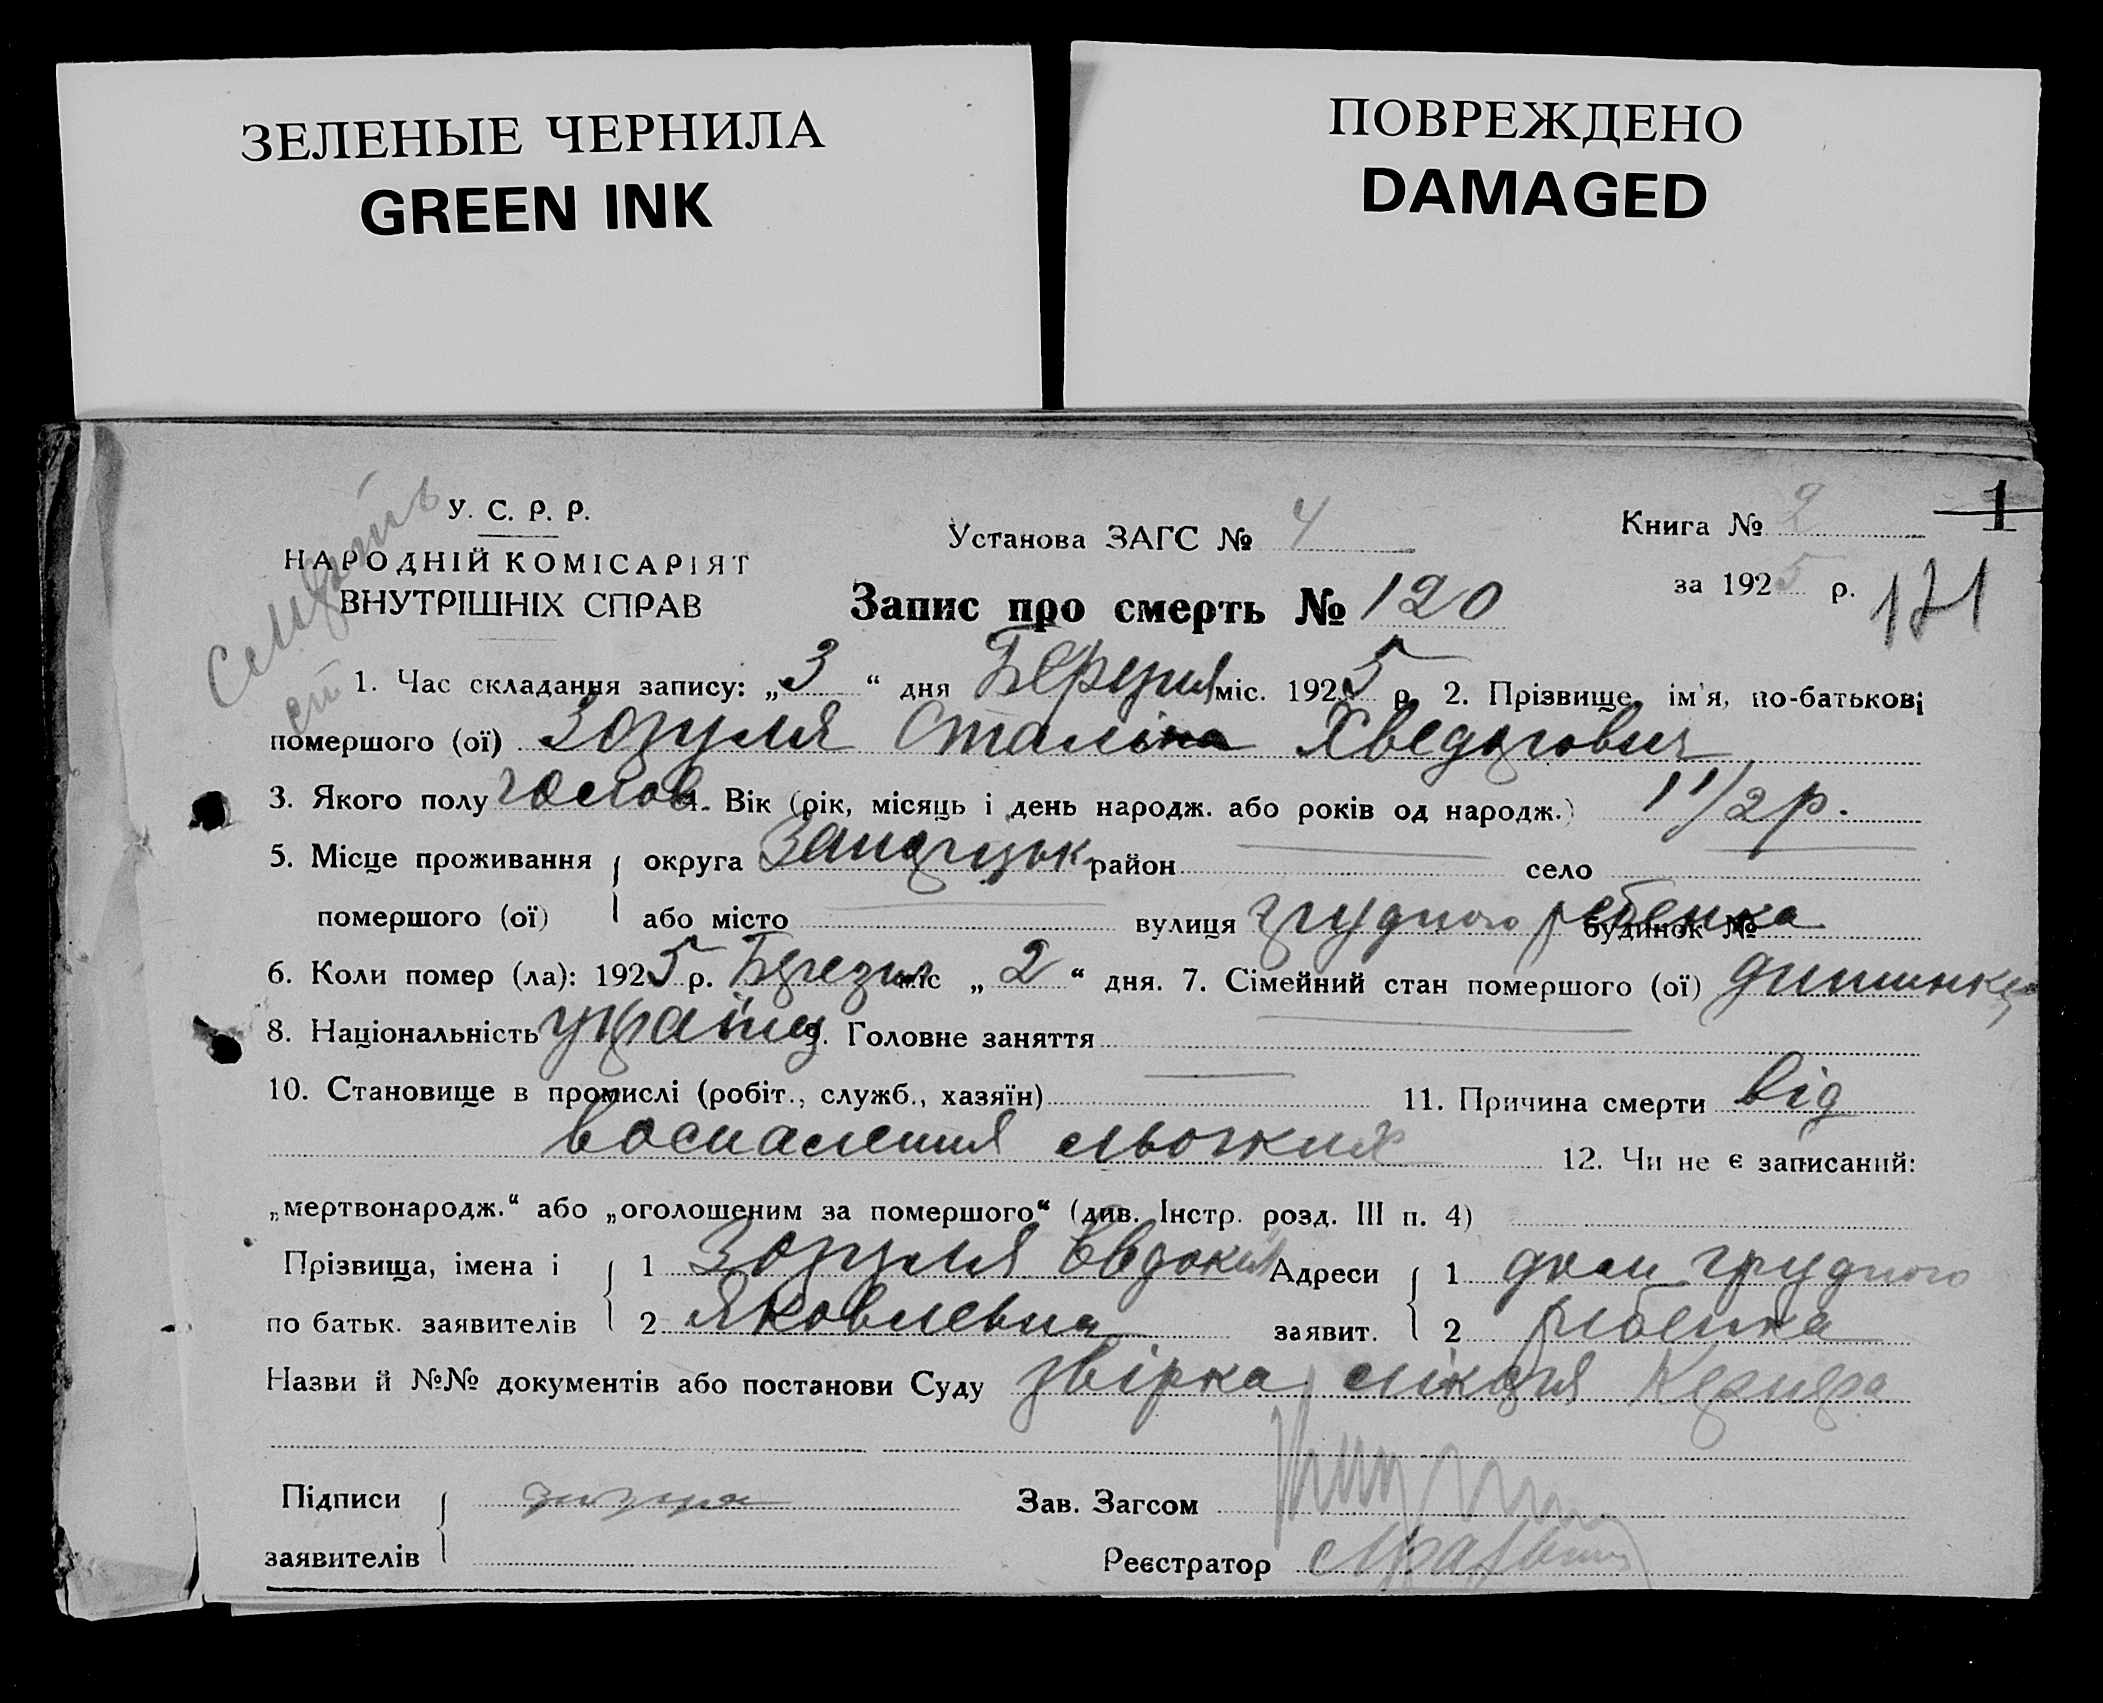 ЗЕЛЕНЫЕ ЧЕРНИЛА
GREEN INK
ПОВРЕЖДЕНО
DAMAGED
У. С. Р. Р.
НАРОДНІЙ КОМІСАРІЯТ
ВНУТРІШНІХ СПРАВ
Установа ЗАГС № 4
Книга № 2
1
за 1925 р.
171
Запис про смерть № 120
1. Час складання запису: „3“ дня Березня міс. 1925 р. 2. Прізвище, ім'я, по-батькові
помершого (ої) Зозуля Сталіна Хведорович
3. Якого полу 4. Вік (рік, місяць і день народж. або років од народж.) 1 1/2 р.
5. Місце проживання округа район село
помершого (ої) або місто вулиця грудного ребенка будинок №
6. Коли помер (ла): 1925 р. Березня міс „2“ дня. 7. Сімейний стан помершого (ої)
8. Національність україн 9. Головне заняття
10. Становище в промислі (робіт., служб., хазяїн) 11. Причина смерти від
воспаления льогких 12. Чи не є записаний:
„мертвонародж.“ або „оголошеним за помершого“ (див. Інстр. розд. III п. 4)
Прізвища, імена і 1 Зозуля Евдокия Адреси 1 дом грудного
по батьк. заявителів 2 Яковлевна заявит. 2 ребенка
Назви й №№ документів або постанови Суду лікаря
Підписи Зав. Загсом
заявителів Реєстратор